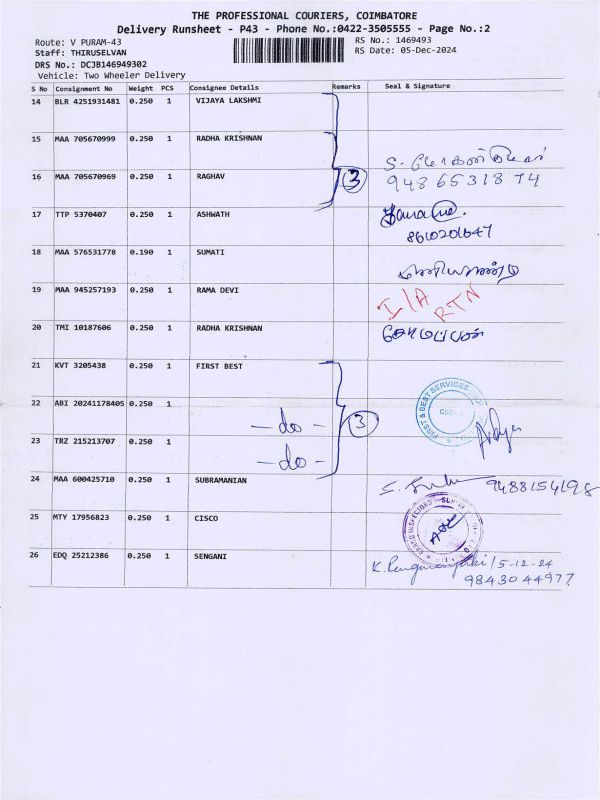 THE PROFESSIONAL COURIERS, COIMBATORE
Delivery Runsheet - P43 - Phone No.:0422-3505555 - Page No.:2
Route: V PURAM-43 RS No.: 1469493
Staff: THIRUSELVAN RS Date: 05-Dec-2024
DRS No.: DCJB146949302
Vehicle: Two Wheeler Delivery
S No Consignment No Weight PCS Consignee Details Remarks Seal & Signature
14 BLR 4251931481 0.250 1 VIJAYA LAKSHMI
15 MAA 705670999 0.250 1 RADHA KRISHNAN
16 MAA 705670969 0.250 1 RAGHAV 3 94865318 74
17 TTP 5370407 0.250 1 ASHWATH
8610201647
18 MAA 576531778 0.190 1 SUMATI
19 MAA 945257193 0.250 1 RAMA DEVI I/A RTN
20 TMI 10187606 0.250 1 RADHA KRISHNAN
21 KVT 3205438 0.250 1 FIRST BEST
22 ABI 20241178405 0.250 1 - do - 3 FIRST & BEST SERVICES
23 TRZ 215213707 0.250 1 - do -
24 MAA 600425710 0.250 1 SUBRAMANIAN 9488154198
25 MTY 17956823 0.250 1 CISCO
26 EDQ 25212386 0.250 1 SENGANI 5-12-24
9843044977